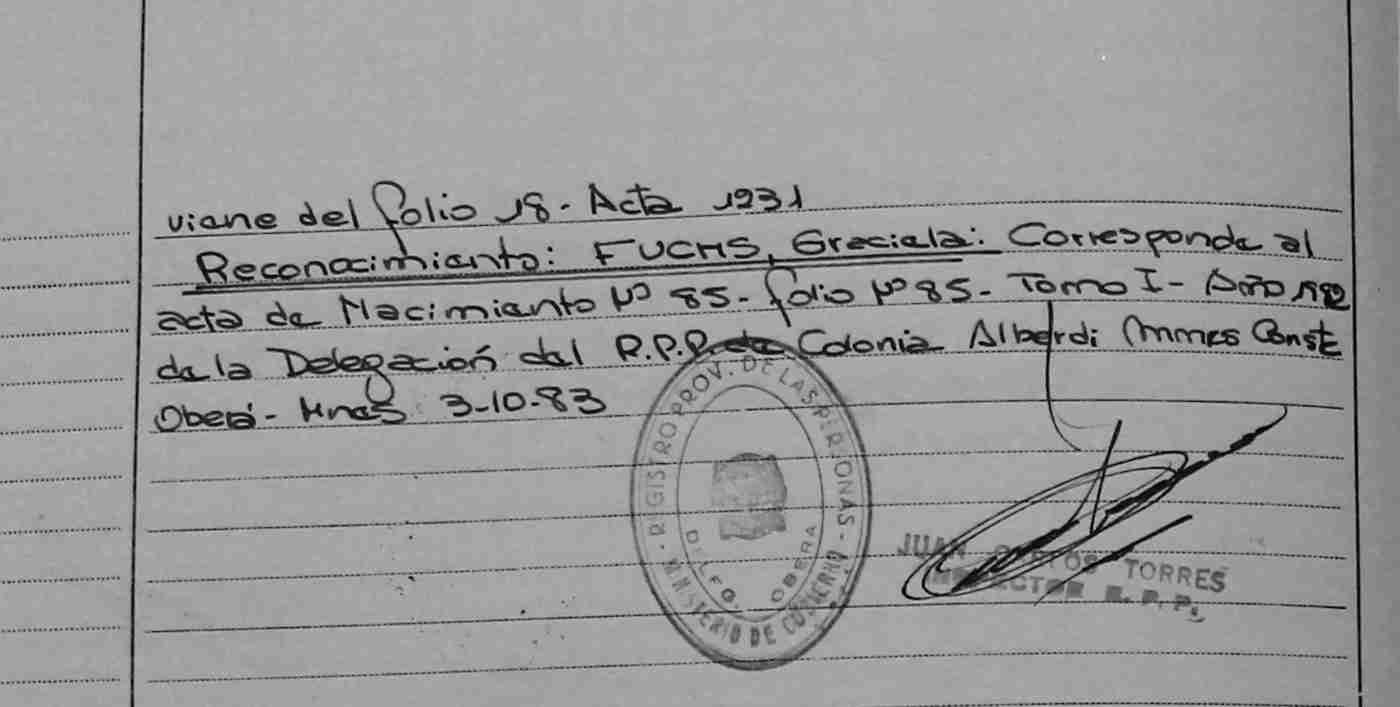 viene del folio 18 - Acta 1931
Reconocimiento: FUCHS, Graciela: Corresponde al
acta de Nacimiento Nº 85 - folio Nº 85 - Tomo I - Año
de la Delegación del R.P.P. de Colonia Alberdi Mnes Const
Oberá - Mnes 3-10-83
REGISTRO PROV. DE LAS PERSONAS -
MINISTERIO DE GOBIERNO
DELEG. OBERA
JUAN CARLOS TORRES
INSPECTOR R. P. P.